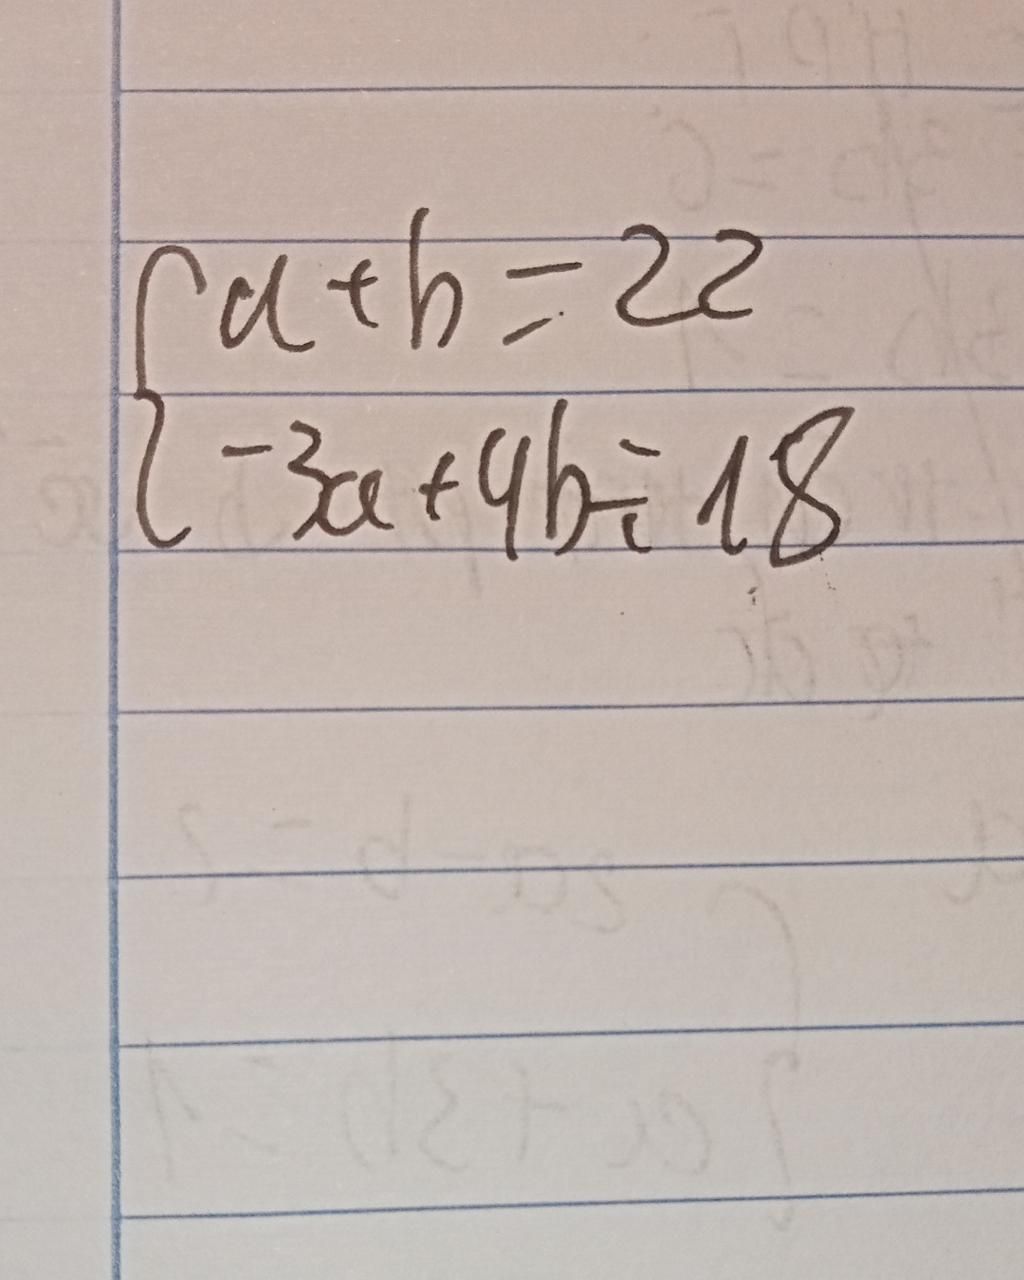 a+b=22
-3a+4b=18